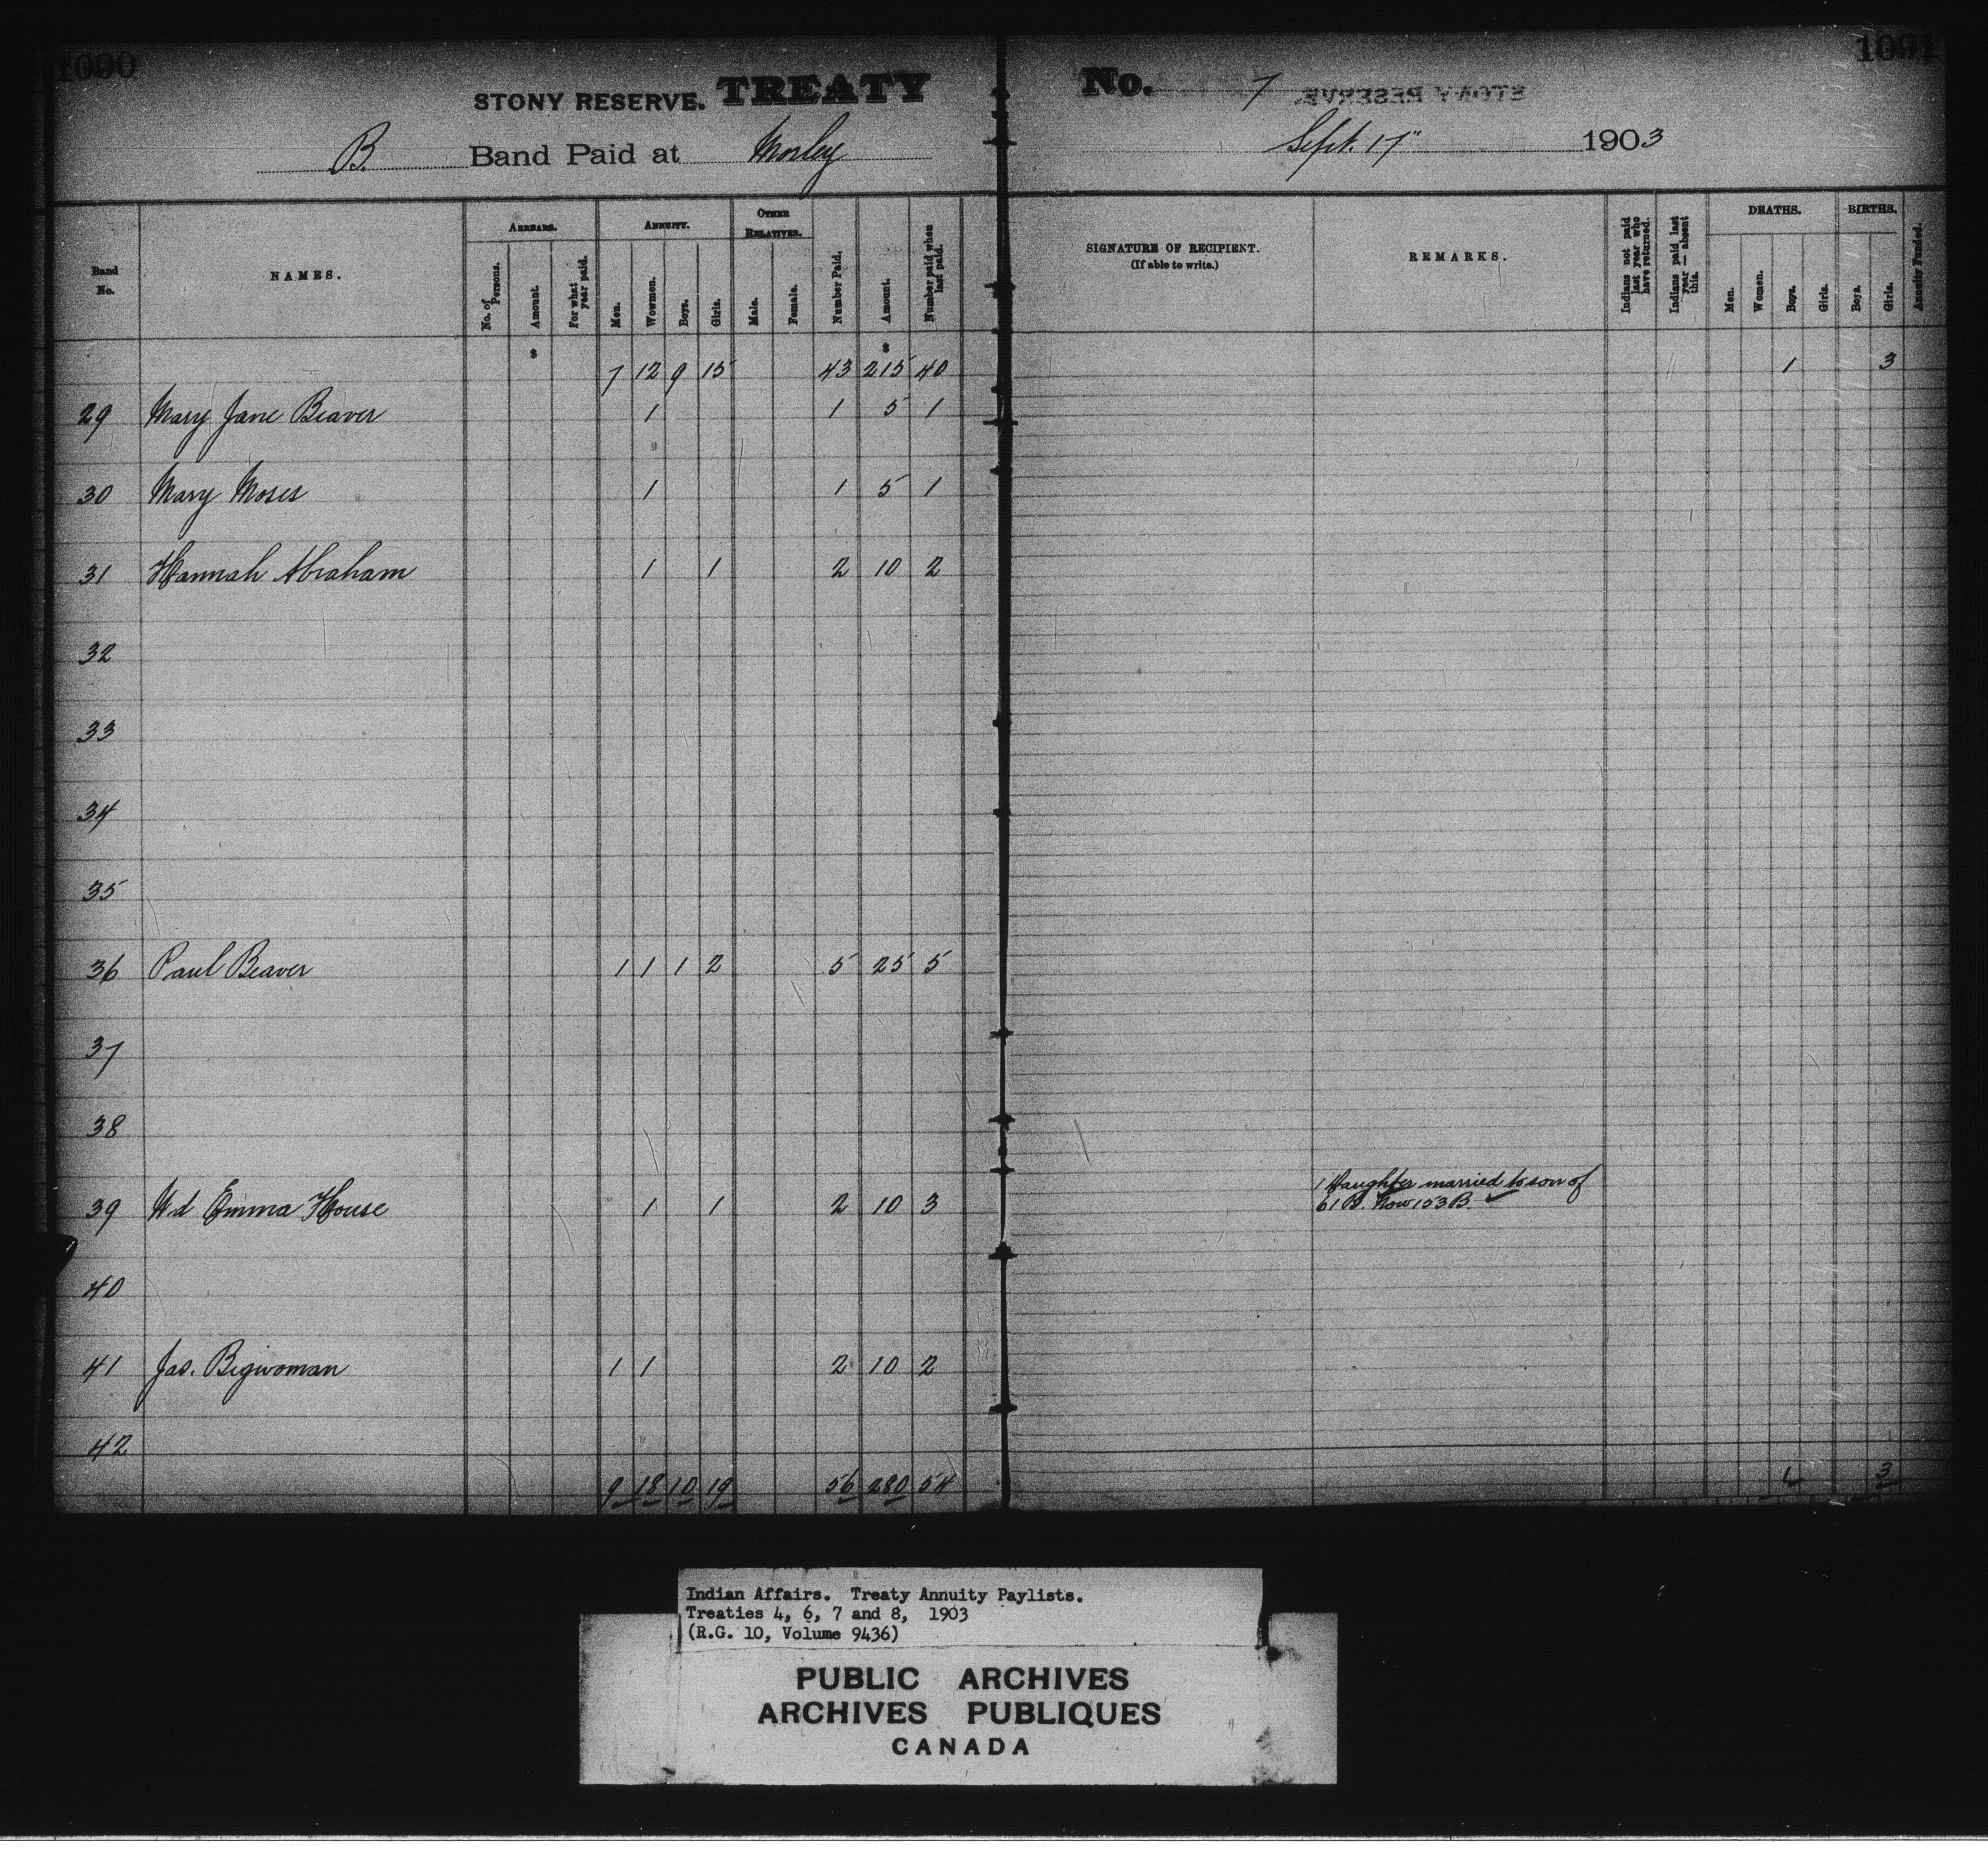 1090 1091
STONY RESERVE. TREATY No. 7 STONY RESERVE.
B. Band Paid at Morley Sept. 17" 1903
Band No. NAMES. ARREARS. No. of Persons. Amount. For what year paid. ANNUITY. Men. Wowmen. Boys. Girls. OTHER RELATIVES. Male. Female. Number Paid. Amount. Number paid when last paid. SIGNATURE OF RECIPIENT. (If able to write.) REMARKS. Indians not paid last year who have returned. Indians paid last year — absent this. DEATHS. Men. Women. Boys. Girls. BIRTHS. Boys. Girls. Annuity Funded.
$ $
7 12 9 15 43 215 40 1 3
29 Mary Jane Beaver 1 1 5 1
30 Mary Moses 1 1 5 1
31 Hannah Abraham 1 1 2 10 2
32
33
34
35
36 Paul Beaver 1 1 1 2 5 25 5
37
38
39 Wd Emma House 1 1 2 10 3 1 Daughter married to son of
61 B. Now 153 B. ✓
40
41 Jas. Bigwoman 1 1 2 10 2
42
9 18 10 19 56 280 54 1 3
Indian Affairs. Treaty Annuity Paylists.
Treaties 4, 6, 7 and 8, 1903
(R.G. 10, Volume 9436)
PUBLIC ARCHIVES
ARCHIVES PUBLIQUES
CANADA